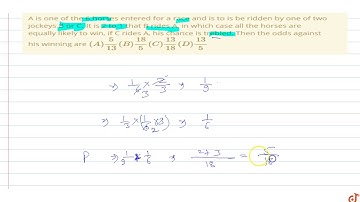 A is one of the 6 horses entered for a race and is to is be ridden by one of two
jockeys B or C. It is 2 to 1 that B rides A, in which case all the horses are
equally likely to win, if C rides A, his chance is trebled. Then the odds against
his winning are (A) 5/13 (B) 18/5 (C) 13/18 (D) 13/5
⇒ 1/6 × 2/3 ⇒ 1/9
3
⇒ 1/3 × (1/6 × 3) ⇒ 1/6
2
P ⇒ 1/9 + 1/6 ⇒ 2+3/18 = 5/18